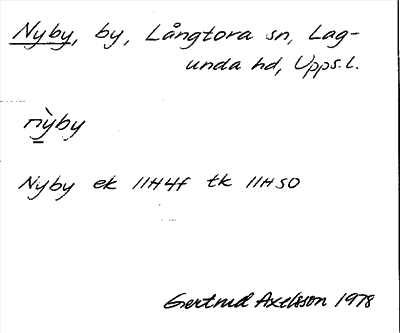 Nyby, by, Långtora sn, Lag-
unda hd, Upps.l.
nỳby
Nyby ek 11H4f tk 11HSO
Gertrud Axelsson 1978